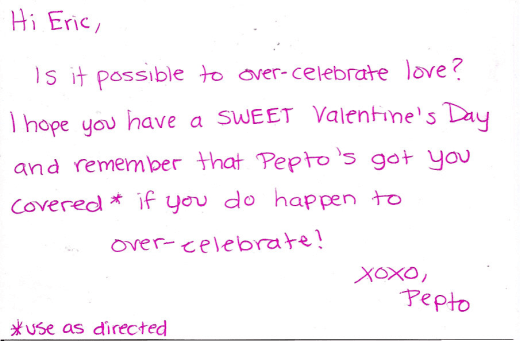 Hi Eric,
Is it possible to over-celebrate love?
I hope you have a SWEET Valentine's Day
and remember that Pepto's got you
covered* if you do happen to
over-celebrate!
XOXO,
Pepto
*use as directed